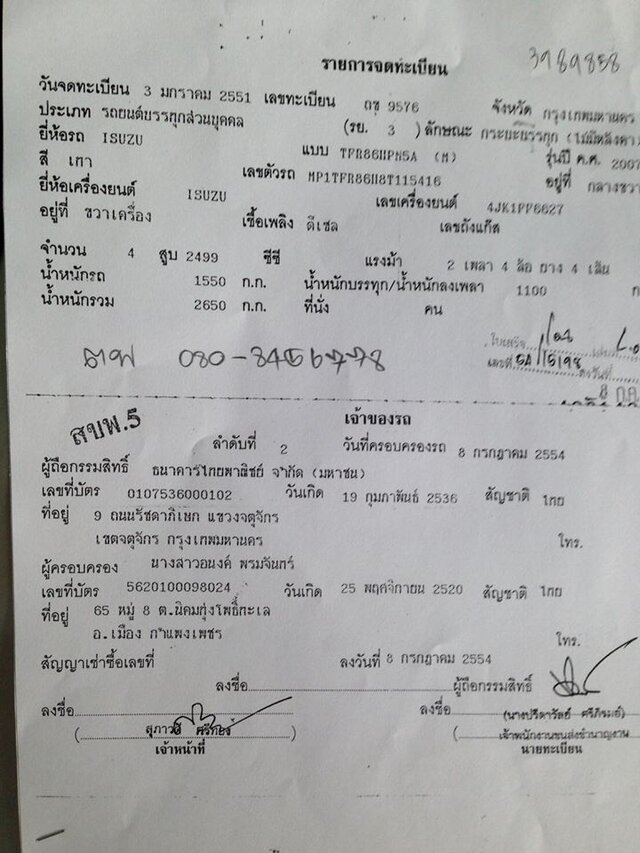 รายการจดทะเบียน
3989858
วันจดทะเบียน 3 มกราคม 2551 เลขทะเบียน ถช 9576 จังหวัด กรุงเทพมหานคร
ประเภท รถยนต์บรรทุกส่วนบุคคล (รย. 3 ) ลักษณะ กระบะบรรทุก (ไม่มีหลังคา)
ยี่ห้อรถ ISUZU แบบ TFR86HPM5A (M) รุ่นปี ค.ศ. 2007
สี เทา เลขตัวรถ MP1TFR86H8T115416 อยู่ที่ กลางขวา
ยี่ห้อเครื่องยนต์ ISUZU เลขเครื่องยนต์ 4JK1FF6627
อยู่ที่ ขวาเครื่อง เชื้อเพลิง ดีเซล เลขถังแก๊ส
จำนวน 4 สูบ 2499 ซีซี แรงม้า 2 เพลา 4 ล้อ ยาง 4 เส้น
น้ำหนักรถ 1550 ก.ก. น้ำหนักบรรทุก/น้ำหนักลงเพลา 1100 ก
น้ำหนักรวม 2650 ก.ก. ที่นั่ง คน
ใบเสร็จ
เลขที่ 54/15198 ลงวันที่
8 ก.ค.
080-3456778
สบพ.5
เจ้าของรถ
ลำดับที่ 2 วันที่ครอบครองรถ 8 กรกฎาคม 2554
ผู้ถือกรรมสิทธิ์ ธนาคารไทยพาณิชย์ จำกัด (มหาชน)
เลขที่บัตร 0107536000102 วันเกิด 19 กุมภาพันธ์ 2536 สัญชาติ ไทย
ที่อยู่ 9 ถนนรัชดาภิเษก แขวงจตุจักร
เขตจตุจักร กรุงเทพมหานคร โทร.
ผู้ครอบครอง นางสาวอนงค์ พรมจันทร์
เลขที่บัตร 5620100098024 วันเกิด 25 พฤศจิกายน 2520 สัญชาติ ไทย
ที่อยู่ 65 หมู่ 8 ต.นิคมทุ่งโพธิ์ทะเล
อ.เมือง กำแพงเพชร โทร.
สัญญาเช่าซื้อเลขที่ ลงวันที่ 8 กรกฎาคม 2554
ลงชื่อ ผู้ถือกรรมสิทธิ์
ลงชื่อ ลงชื่อ
( สุภาวดี ) (นางปรีดารัลย์ ศรีภิรมย์)
เจ้าหน้าที่ ( เจ้าพนักงานขนส่งชำนาญงาน
นายทะเบียน